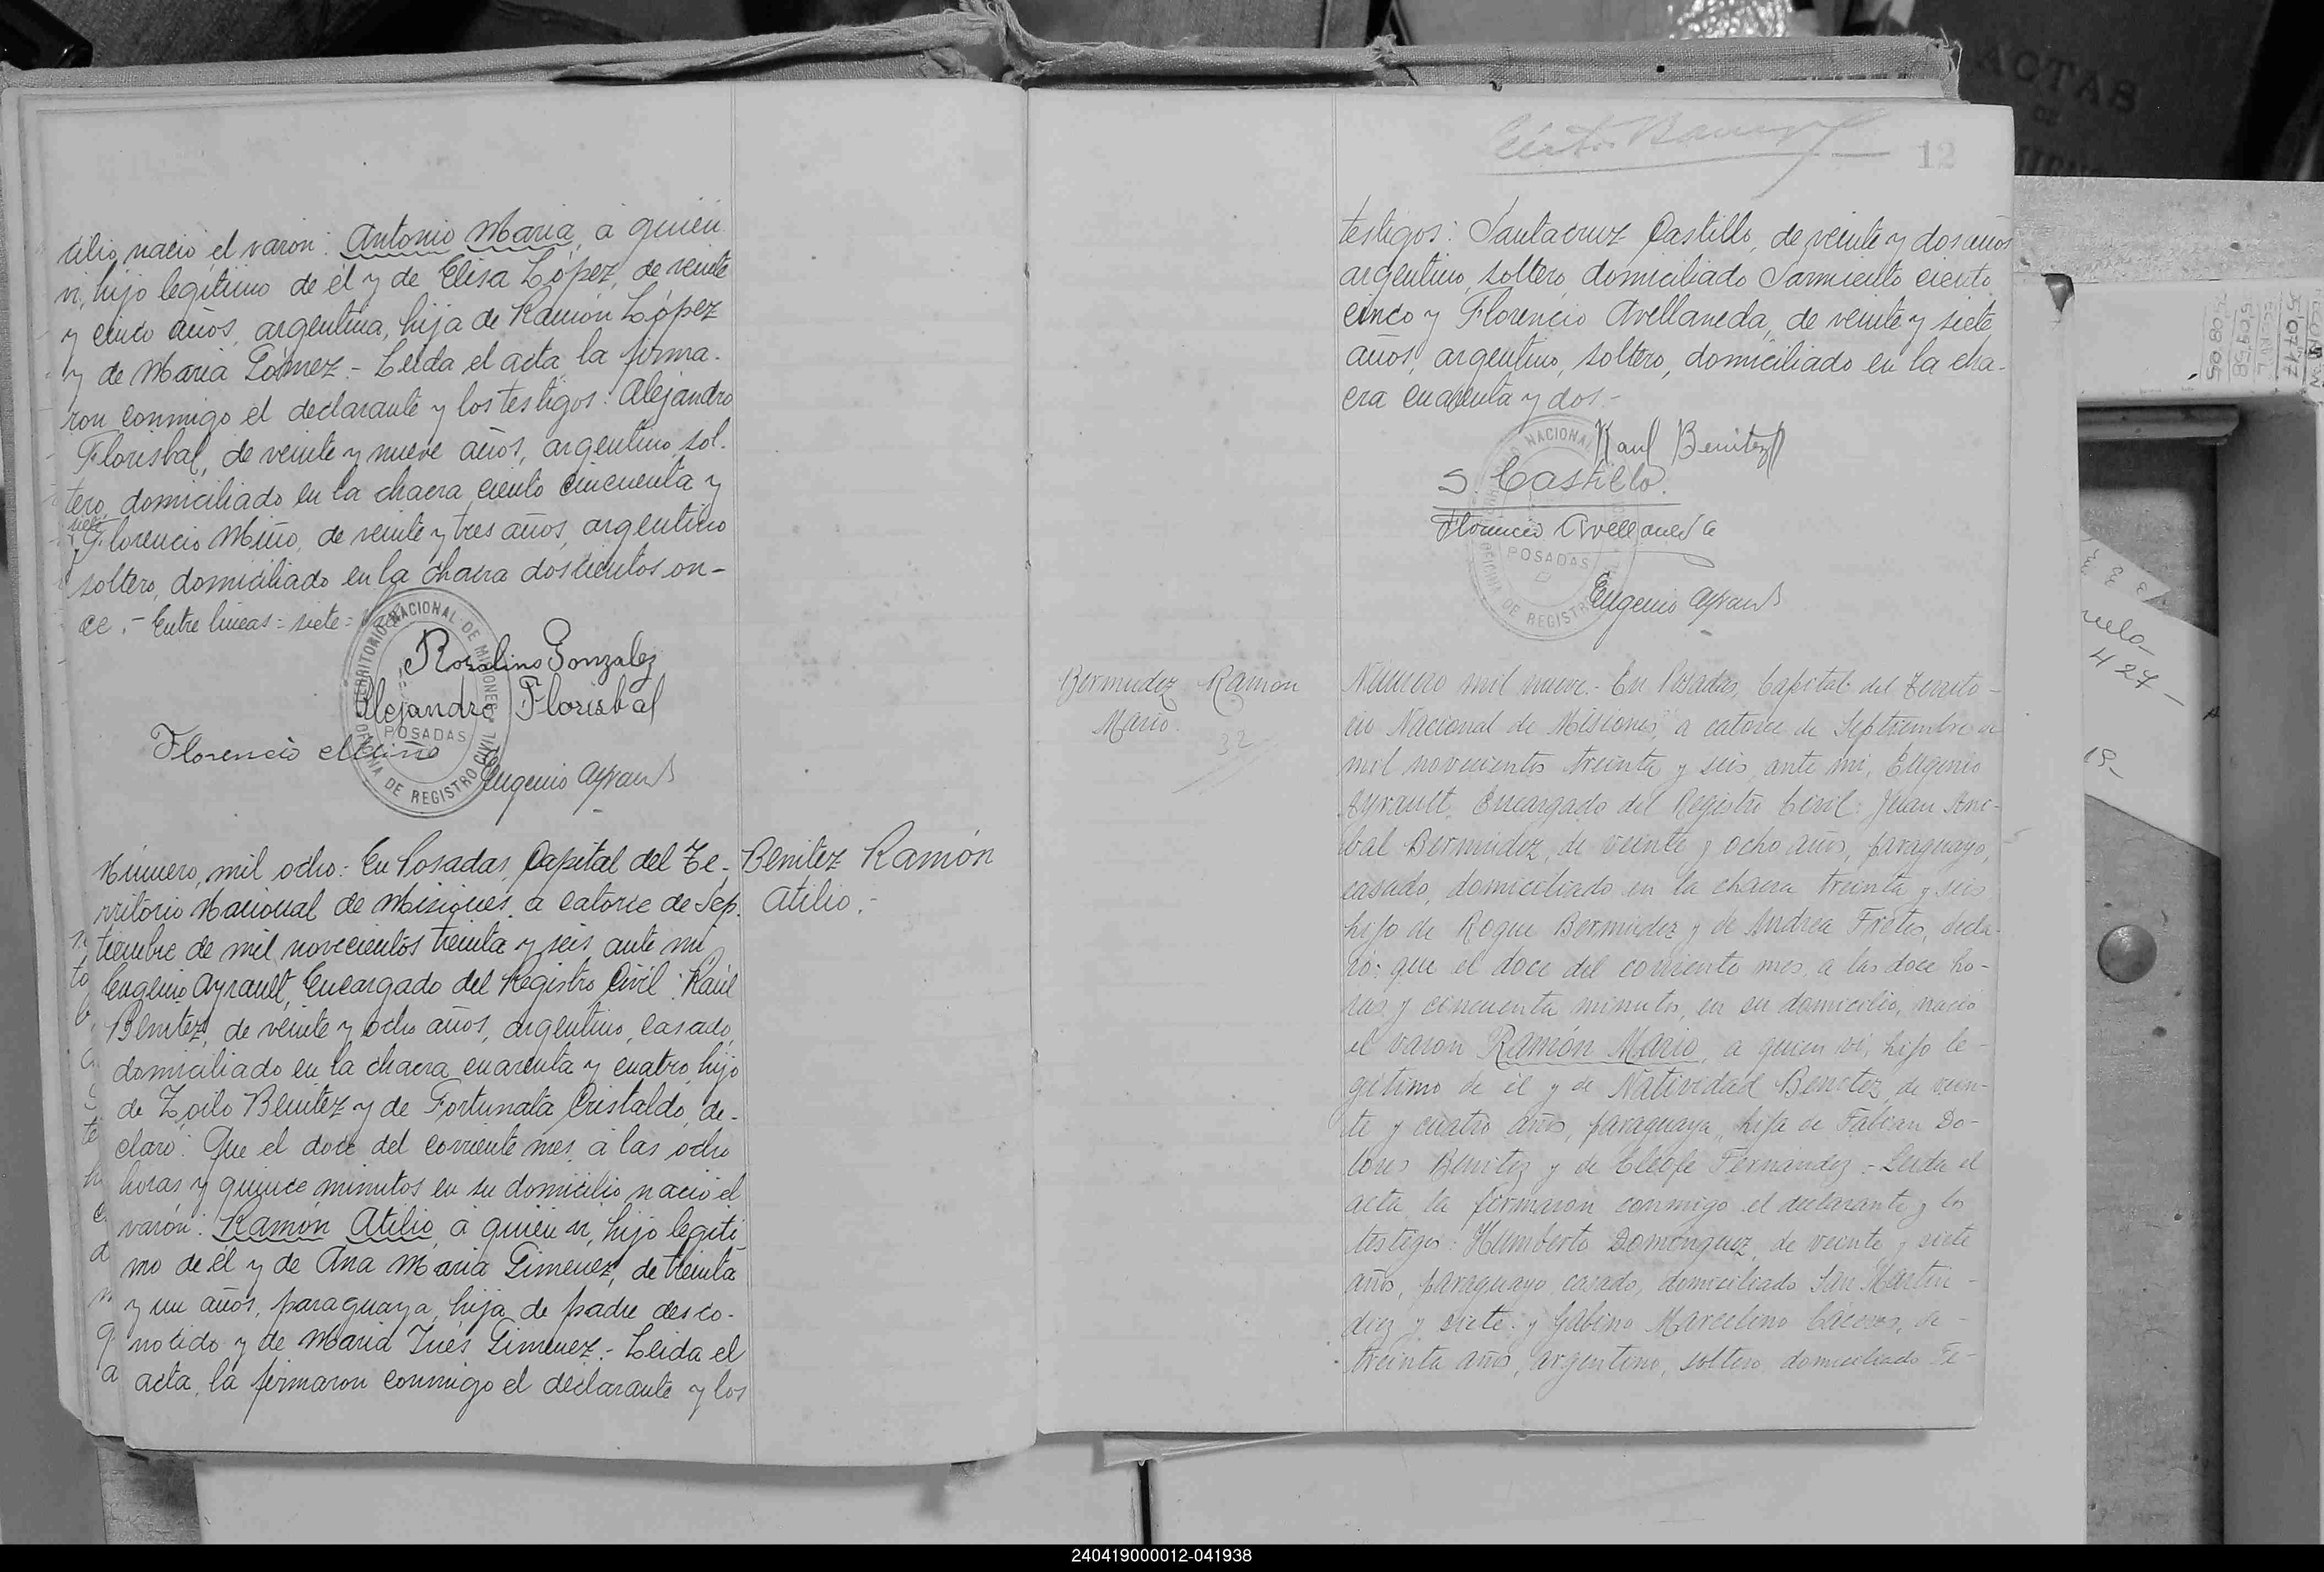 cilio, nació el varón: Antonio Maria, a quien
vi, hijo legítimo de él y de Elisa López, de veinte
y cinco años, argentina, hija de Ramón López
y de Maria Gómez.- Leida el acta, la firma-
ron conmigo el declarante y los testigos: Alejandro
Florisbal, de veinte y nueve años, argentino, sol-
tero, domiciliado en la chacra ciento cincuenta y
siete
y Florencio Miño, de veinte y tres años, argentino
soltero, domiciliado en la chacra doscientos on-
ce.- Entre lineas = siete =
Rosalino Gonzalez
Alejandro Florisbal
Florencio Miño
Eugenio Ayrault
TERRITORIO NACIONAL DE MISIONES
POSADAS
OFICINA DE REGISTRO CIVIL
Número, mil ocho: En Posadas, Capital del Te-
rritorio Nacional de Misiones, a catorce de Sep-
tiembre de mil novecientos treinta y seis, ante mi
Eugenio Ayrault, Encargado del Registro Civil: Raúl
Benitez, de veinte y ocho años, argentino, casado,
domiciliado en la chacra cuarenta y cuatro, hijo
de Zoilo Benitez y de Fortunata Cristaldo, de-
claró: Que el doce del corriente mes, a las ocho
horas y quince minutos en su domicilio nació el
varón: Ramón Atilio, a quien vi, hijo legiti-
mo de él y de Ana Maria Gimenez, de treinta
y un años, paraguaya, hija de padre desco-
nocido y de Maria Inés Gimenez.- Leida el
acta, la firmaron conmigo el declarante y los
Benitez Ramón
Atilio.-
12
testigos: Santacruz Castillo, de veinte y dos años
argentino, soltero domiciliado Sarmiento ciento
cinco y Florencio Avellaneda, de veinte y siete
años, argentino, soltero, domiciliado en la cha-
cra cuarenta y dos.-
Raul Benitez
S. Castillo
Florencio Avellaneda
Eugenio Ayrault
NACIONAL
POSADAS
OFICINA DE REGISTRO
Bermudez Ramon
Mario.
32
Número mil nueve.- En Posadas, Capital del Territo-
rio Nacional de Misiones, a catorce de Septiembre de
mil novecientos treinta y seis, ante mi, Eugenio
Ayrault, Encargado del Registro Civil: Juan Ani-
bal Bermudez, de veinte y ocho años, paraguayo,
casado, domiciliado en la chacra treinta y seis
hijo de Roque Bermudez y de Andrea Fretes, decla-
ró: que el doce del corriente mes, a las doce ho-
ras y cincuenta minutos, en su domicilio, nació
el varon Ramón Mario, a quien vi, hijo le-
gitimo de él y de Natividad Benitez, de vein-
te y cuatro años, paraguaya, hija de Fabian Do-
lores Benitez y de Cleofe Fernández.- Leida el
acta la firmaron conmigo el declarante y los
testigos: Humberto Dominguez, de veinte y siete
años, paraguayo, casado, domiciliado San Martin
diez y siete: y Gabino Marcelino Cáceres, de
treinta años, argentino, soltero, domiciliado Fe-
ACTAS
DE
427
19-
240419000012-041938